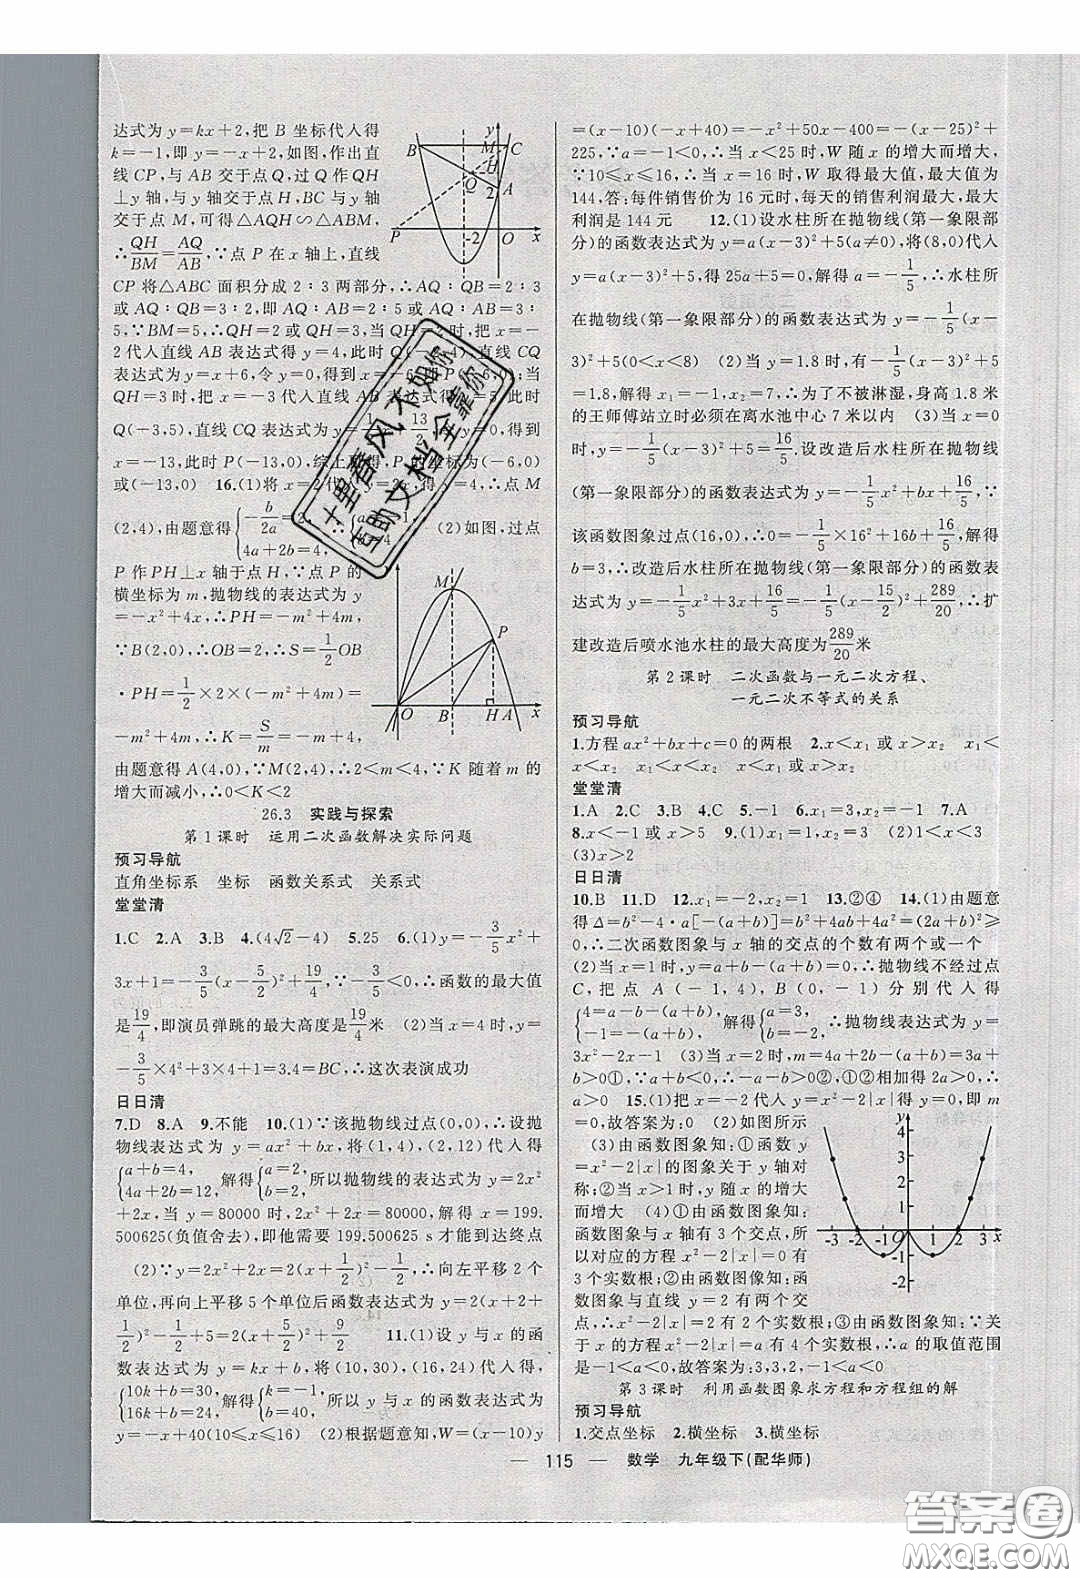 达式为 y=kx+2,把 B 坐标代入得
k=-1,即 y=-x+2,如图,作出直
线 CP,与 AB 交于点 Q,过 Q 作 QH
⊥y 轴,与 y 轴交于点 H,BC 与 y 轴
交于点 M,可得△AQH∽△ABM,
∴QH/BM=AQ/AB,∵点 P 在 x 轴上,直线
CP 将△ABC 面积分成 2∶3 两部分,∴AQ∶QB=2∶3
或 AQ∶QB=3∶2,即 AQ∶AB=2∶5 或 AQ∶AB=3∶
5,∵BM=5,∴QH=2 或 QH=3,当 QH=2 时,把 x=-
2 代入直线 AB 表达式得 y=4,此时 Q(-2,4),直线 CQ
表达式为 y=x+6,令 y=0,得到 x=-6,
QH=3 时,把 x=-3 代入直线 AB
Q(-3,5),直线 CQ 表达式为
x=-13,此时 P(-13,0),综上
或(-13,0) 16.(1)将 x=2 代入
(2,4),由题意得{-b/2a=2, 4a+2b=4, (2)如图,过点
P 作 PH⊥x 轴于点 H,∵点 P 的
横坐标为 m,抛物线的表达式为 y
=-x²+4x,∴PH=-m²+4m,
∵B(2,0),∴OB=2,∴S=1/2OB
·PH=1/2×2×(-m²+4m)=
-m²+4m,∴K=S/m=-m+4,
由题意得 A(4,0),∵M(2,4),∴2<m<4,∵K 随着 m 的
增大而减小,∴0<K<2
26.3 实践与探索
第 1 课时 运用二次函数解决实际问题
预习导航
直角坐标系 坐标 函数关系式 关系式
堂堂清
1.C 2.A 3.B 4.(4√2-4) 5.25 6.(1)y=-3/5x²+
3x+1=-3/5(x-5/2)²+19/4,∵-3/5<0,∴函数的最大值
是19/4,即演员弹跳的最大高度是19/4米 (2)当 x=4 时,y=
-3/5×4²+3×4+1=3.4=BC,∴这次表演成功
日日清
7.D 8.A 9.不能 10.(1)∵该抛物线过点(0,0),∴设抛
物线表达式为 y=ax²+bx,将(1,4),(2,12)代入得
{a+b=4, 4a+2b=12, 解得{a=2, b=2, 所以抛物线的表达式为 y=2x²
+2x,当 y=80000 时,2x²+2x=80000,解得 x=199.
500625(负值舍去),即他需要 199.500625 s 才能到达终点
(2)∵y=2x²+2x=2(x+1/2)²-1/2,∴向左平移 2 个
单位,再向上平移 5 个单位后函数表达式为 y=2(x+2+
1/2)²-1/2+5=2(x+5/2)²+9/2 11.(1)设 y 与 x 的函
数表达式为 y=kx+b,将(10,30),(16,24)代入得
{10k+b=30, 16k+b=24, 解得{k=-1, b=40, 所以 y 与 x 的函数表达式
为 y=-x+40(10≤x≤16) (2)根据题意知,W=(x-10)y
=(x-10)(-x+40)=-x²+50x-400=-(x-25)²+
225,∵a=-1<0,∴当 x<25 时,W 随 x 的增大而增大,
∵10≤x≤16,∴当 x=16 时,W 取得最大值,最大值为
144,答:每件销售价为 16 元时,每天的销售利润最大,最大
利润是 144 元 12.(1)设水柱所在抛物线(第一象限部
分)的函数表达式为 y=a(x-3)²+5(a≠0),将(8,0)代入
y=a(x-3)²+5,得 25a+5=0,解得 a=-1/5,∴水柱所
在抛物线(第一象限部分)的函数表达式为 y=-1/5(x-
3)²+5(0<x<8) (2)当 y=1.8 时,有-1/5(x-3)²+5
=1.8,解得 x₁=-1,x₂=7,∴为了不被淋湿,身高 1.8 米
的王师傅站立时必须在离水池中心 7 米以内 (3)当 x=0
时,y=-1/5(x-3)²+5=16/5.设改造后水柱所在抛物线
(第一象限部分)的函数表达式为 y=-1/5x²+bx+16/5,∵
该函数图象过点(16,0),∴0=-1/5×16²+16b+16/5,解得
b=3,∴改造后水柱所在抛物线(第一象限部分)的函数表
达式为 y=-1/5x²+3x+16/5=-1/5(x-15/2)²+289/20,∴扩
建改造后喷水池水柱的最大高度为289/20米
第 2 课时 二次函数与一元二次方程、
一元二次不等式的关系
预习导航
1.方程 ax²+bx+c=0 的两根 2.x<x₁ 或 x>x₂ x₁<
x<x₂ x₁<x<x₂ x<x₁ 或 x>x₂
堂堂清
1.A 2.C 3.B 4.C 5.-1 6.x₁=3,x₂=-1 7.A
8.x<-1 或 x>5 9.(1)x₁=1,x₂=3 (2)1<x<3
(3)x>2
日日清
10.B 11.D 12.x₁=-2,x₂=1 13.②④ 14.(1)由题意
得 Δ=b²-4·a[-(a+b)]=b²+4ab+4a²=(2a+b)²≥
0,∴二次函数图象与 x 轴的交点的个数有两个或一个
(2)当 x=1 时,y=a+b-(a+b)=0,∴抛物线不经过点
C,把点 A(-1,4),B(0,-1)分别代入得
{4=a-b-(a+b), -1=-(a+b), 解得{a=3, b=-2, ∴抛物线表达式为 y=
3x²-2x-1 (3)当 x=2 时,m=4a+2b-(a+b)=3a+
b>0①,∵a+b<0,∴-a-b>0②,①+②相加得 2a>0,∴
a>0 15.(1)把 x=-2 代入 y=x²-2|x|得 y=0,即 m
=0,故答案为:0 (2)如图所示
(3)由函数图象知:①函数 y
=x²-2|x|的图象关于 y 轴对
称;②当 x>1 时,y 随 x 的增大
而增大 (4)①由函数图象知:
函数图象与 x 轴有 3 个交点,所
以对应的方程 x²-2|x|=0 有
3 个实数根;②由函数图像知:函
数图象与直线 y=2 有两个交
点,∴x²-2|x|=2 有 2 个实数根;③由函数图象知:∵关于
x 的方程 x²-2|x|=a 有 4 个实数根,∴a 的取值范围
是-1<a<0,故答案为:3,3,2,-1<a<0
第 3 课时 利用函数图象求方程和方程组的解
预习导航
1.交点坐标 2.横坐标 3.横坐标
— 115 — 数学 九年级下(配华师)
十里春风不如你
互助文档全靠你
答案圈
MXQE.COM